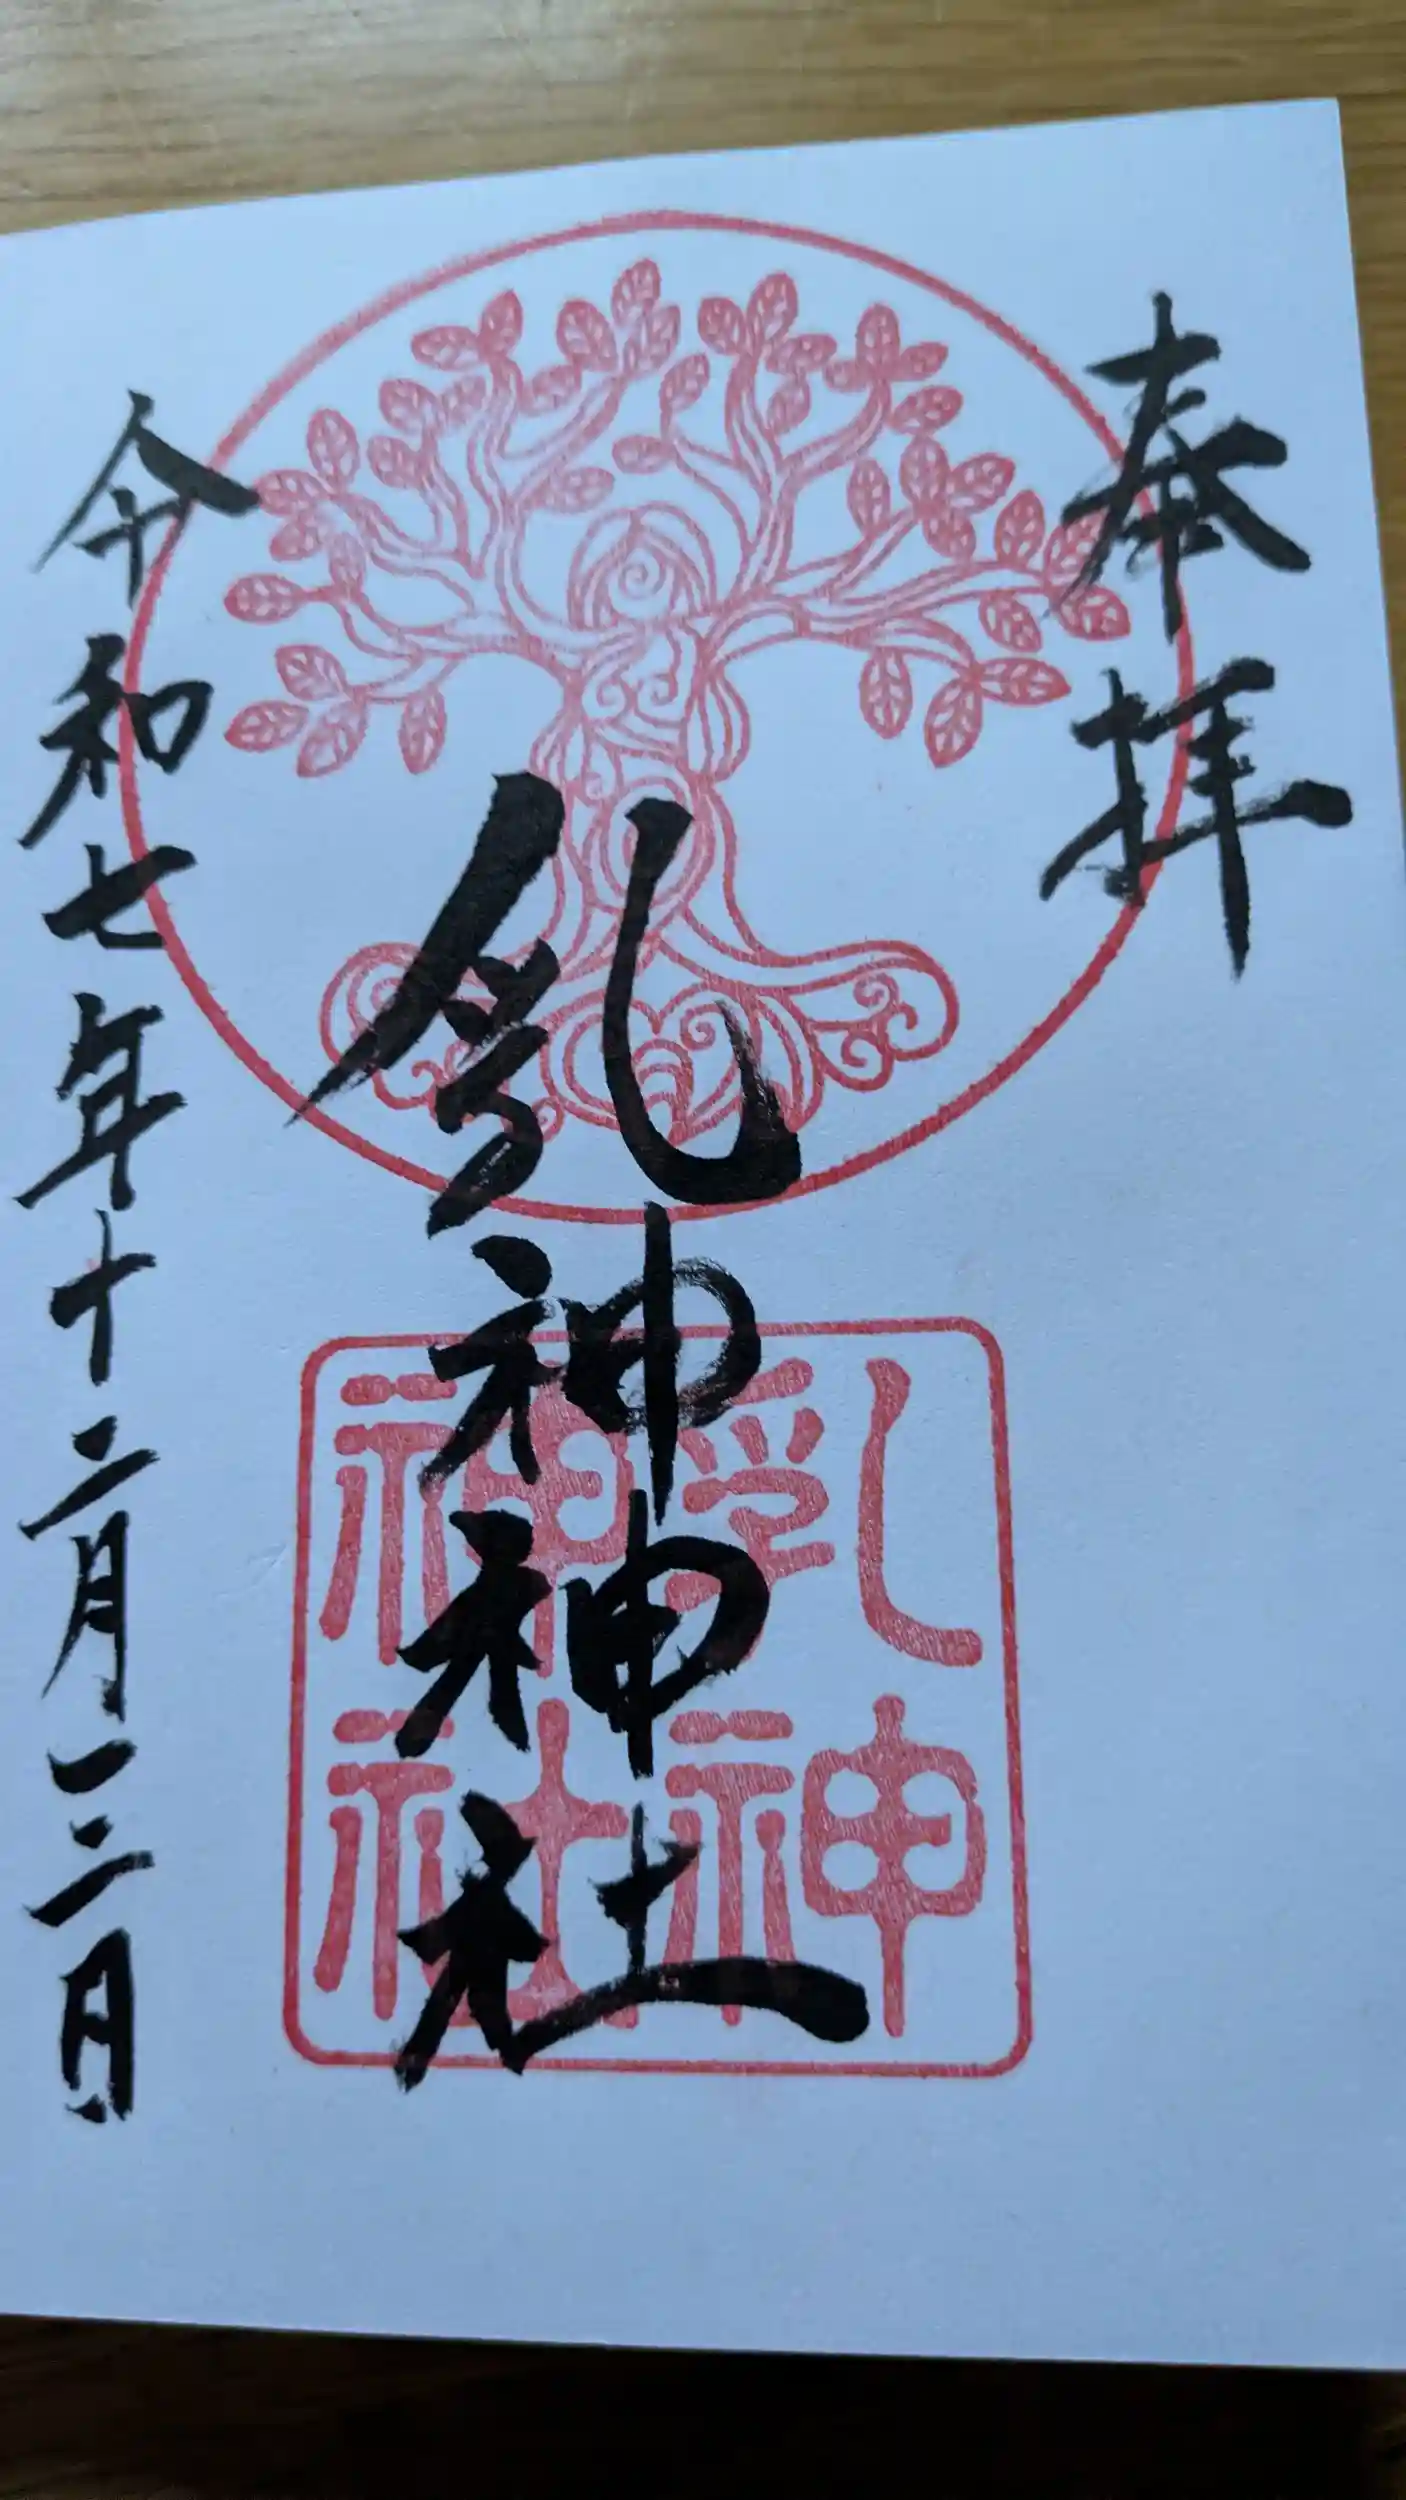 奉拝
乳神神社
令和七年十二月三日
乳神
神社